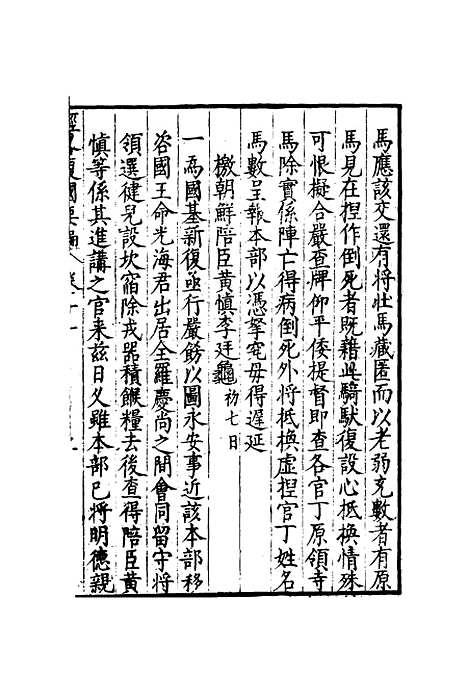 馬應該交還有将壮馬藏匿而以老弱充數者有原
馬見在揑作倒死者既藉此騎馱復設心抵換情殊
可恨擬合嚴查牌仰平倭提督即查各官丁原領寺
馬除實係陣亡得病倒死外将抵換虛揑官丁姓名
馬數呈報本部以憑拏究毋得遲延
檄朝鮮陪臣黃慎李廷龜初七日
一為國基新復亟行嚴飭以圖永安事近該本部移
咨國王命光海君出居全羅慶尚之間會同留守将
領選健兒設坎窞除戎器積餱糧去後查得陪臣黃
慎等係其進講之官来兹日乆雖本部已将明德親
經畧復國要編 卷十一